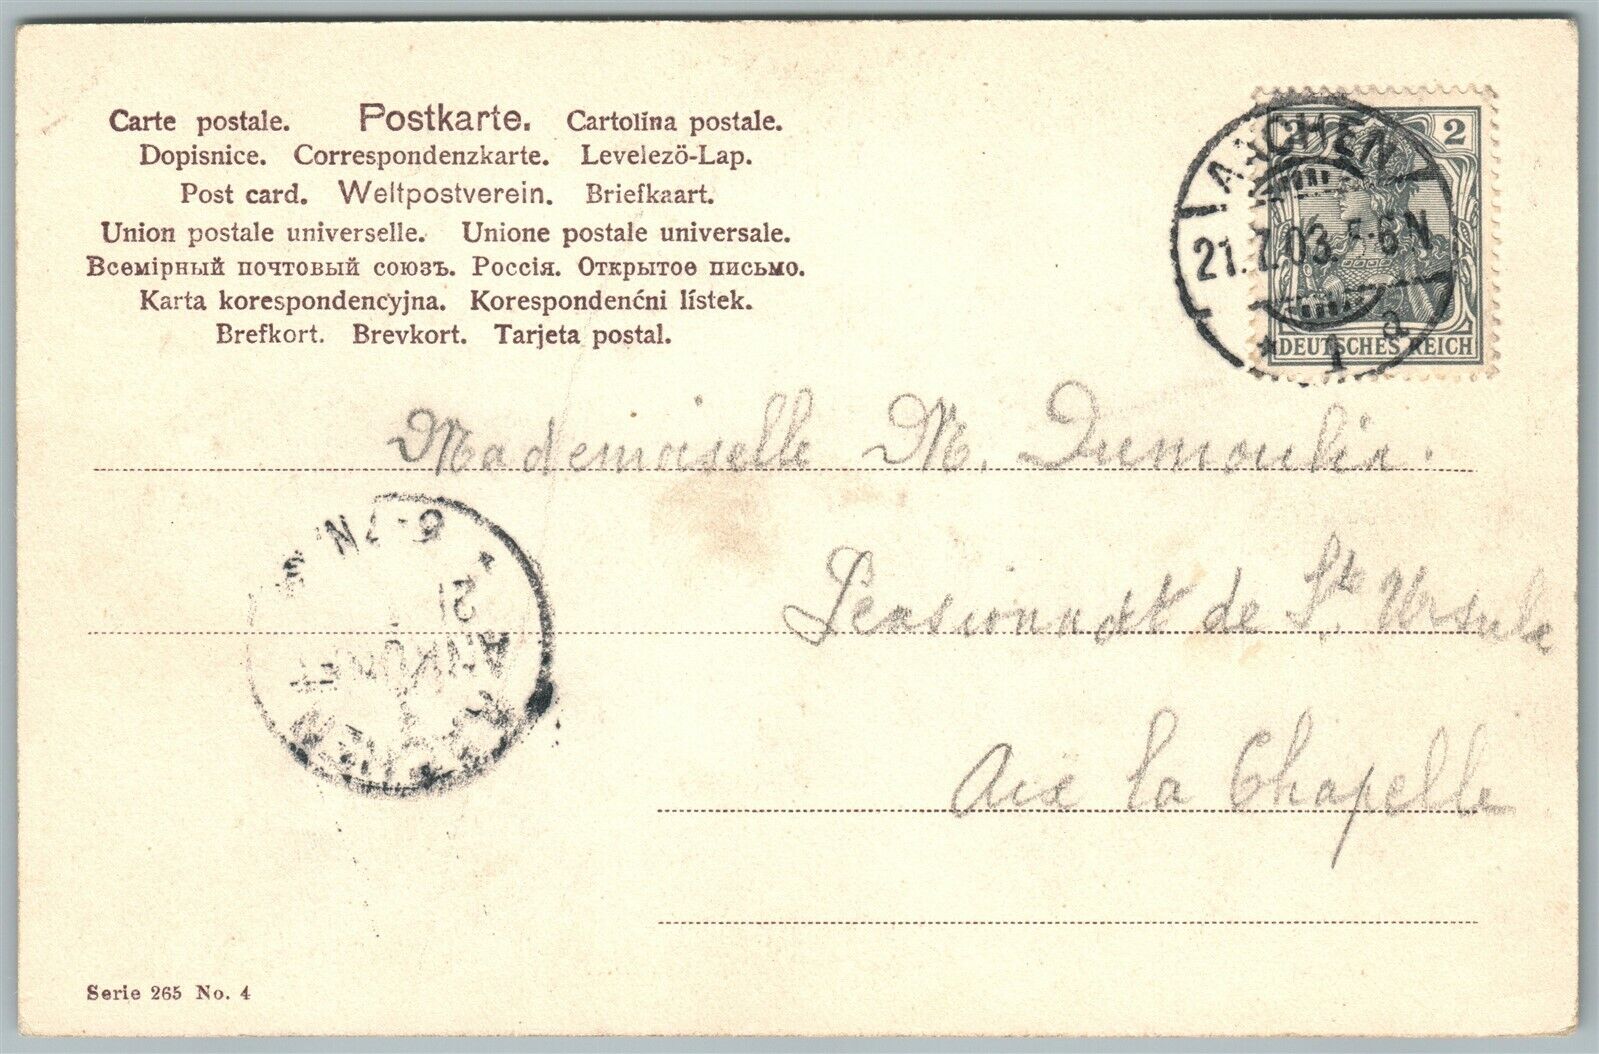 Carte postale. Postkarte. Cartolina postale.
Dopisnice. Correspondenzkarte. Levelezö-Lap.
Post card. Weltpostverein. Briefkaart.
Union postale universelle. Unione postale universale.
Всемірный почтовый союзъ. Россія. Открытое письмо.
Karta korespondencyjna. Korespondenćni lístek.
Brefkort. Brevkort. Tarjeta postal.
2 2
DEUTSCHES REICH
AACHEN
21.7.03. 5-6N
* 1 a
Mademoiselle M. Dumoulin.
Pensionnat de Ste Ursule
Aix la Chapelle
6-7N.
21
AACHEN
1
Serie 265 No. 4